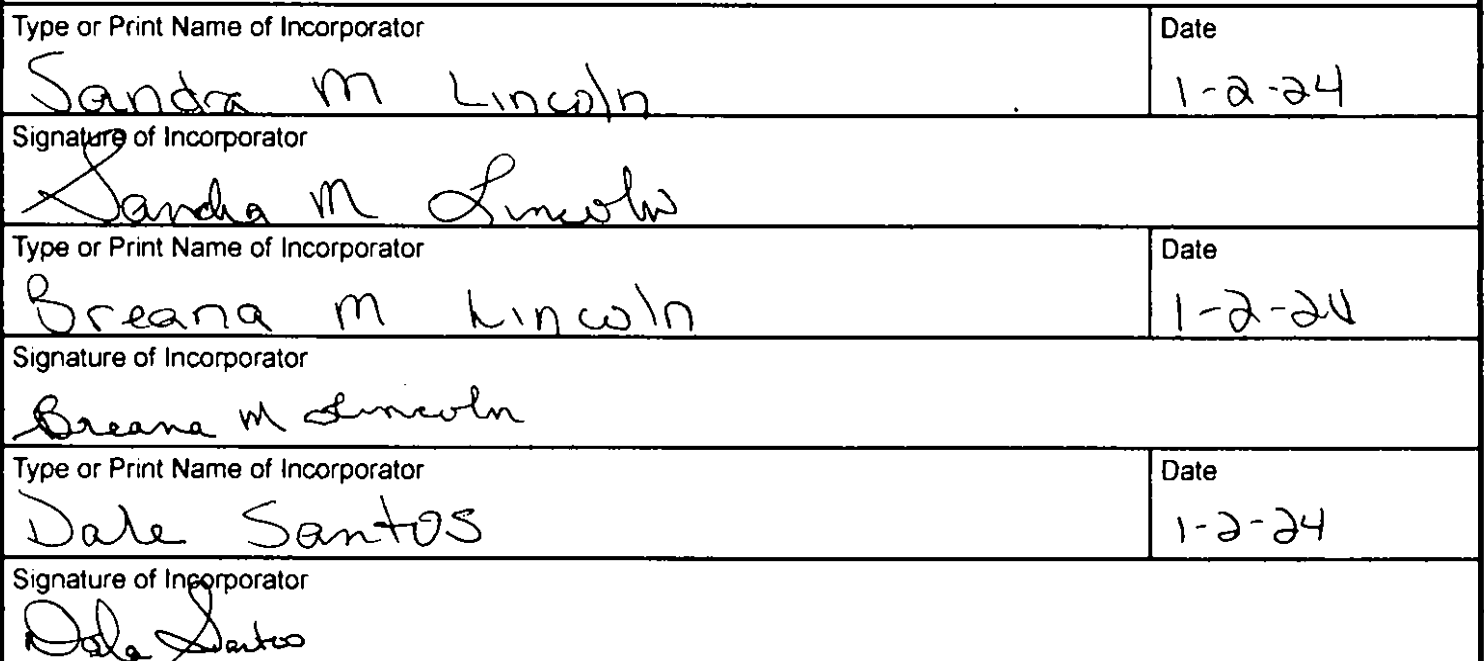 Type or Print Name of Incorporator Date
Sandra M Lincoln 1-2-24
Signature of Incorporator
Sandra M Lincoln
Type or Print Name of Incorporator Date
Breana M Lincoln 1-2-24
Signature of Incorporator
Breana M Lincoln
Type or Print Name of Incorporator Date
Dale Santos 1-2-24
Signature of Incorporator
Dale Santos